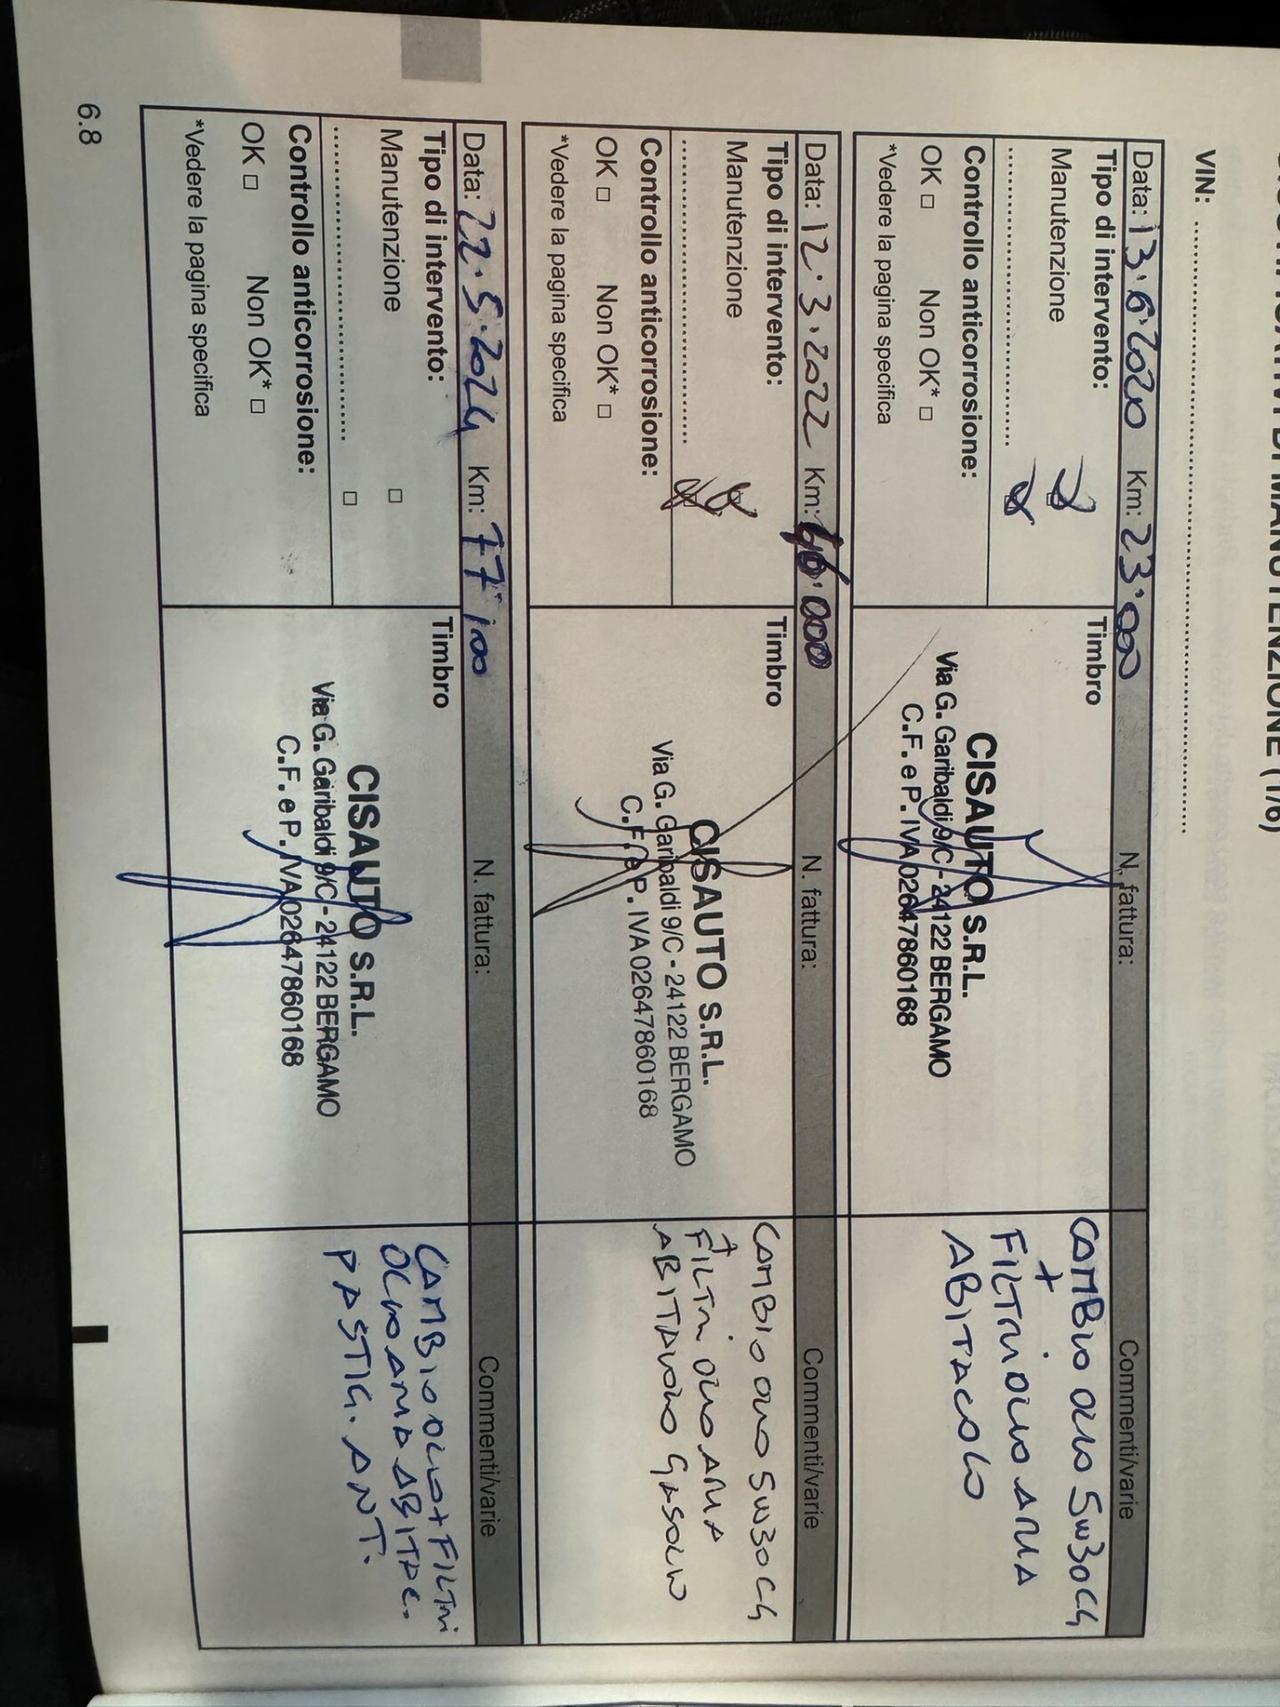 VIN:
Data: 13.6.2020 Km: 23.000 N. fattura: Commenti/varie
Tipo di intervento:
Manutenzione
Controllo anticorrosione:
OK □ Non OK* □
*Vedere la pagina specifica
Timbro
CISAUTO S.R.L.
Via G. Garibaldi 9/C - 24122 BERGAMO
C.F. e P. IVA 02647860168
CAMBIO OLIO 5W30C4
+
FILTRI OLIO ARIA
ABITACOLO
Data: 12.3.2022 Km: 000 N. fattura: Commenti/varie
Tipo di intervento:
Manutenzione
Controllo anticorrosione:
OK □ Non OK* □
*Vedere la pagina specifica
Timbro
CISAUTO S.R.L.
Via G. Garibaldi 9/C - 24122 BERGAMO
C.F. e P. IVA 02647860168
CAMBIO OLIO 5W30C4
+
FILTRI OLIO ARIA
ABITACOLO GASOLIO
Data: 22.5.2024 Km: 77.100 N. fattura: Commenti/varie
Tipo di intervento:
Manutenzione □
□
Controllo anticorrosione:
OK □ Non OK* □
*Vedere la pagina specifica
Timbro
CISAUTO S.R.L.
Via G. Garibaldi 9/C - 24122 BERGAMO
C.F. e P. IVA 02647860168
CAMBIO OLIO + FILTRI
OLIO ARIA ABITAC.
PASTIG. ANT.
6.8